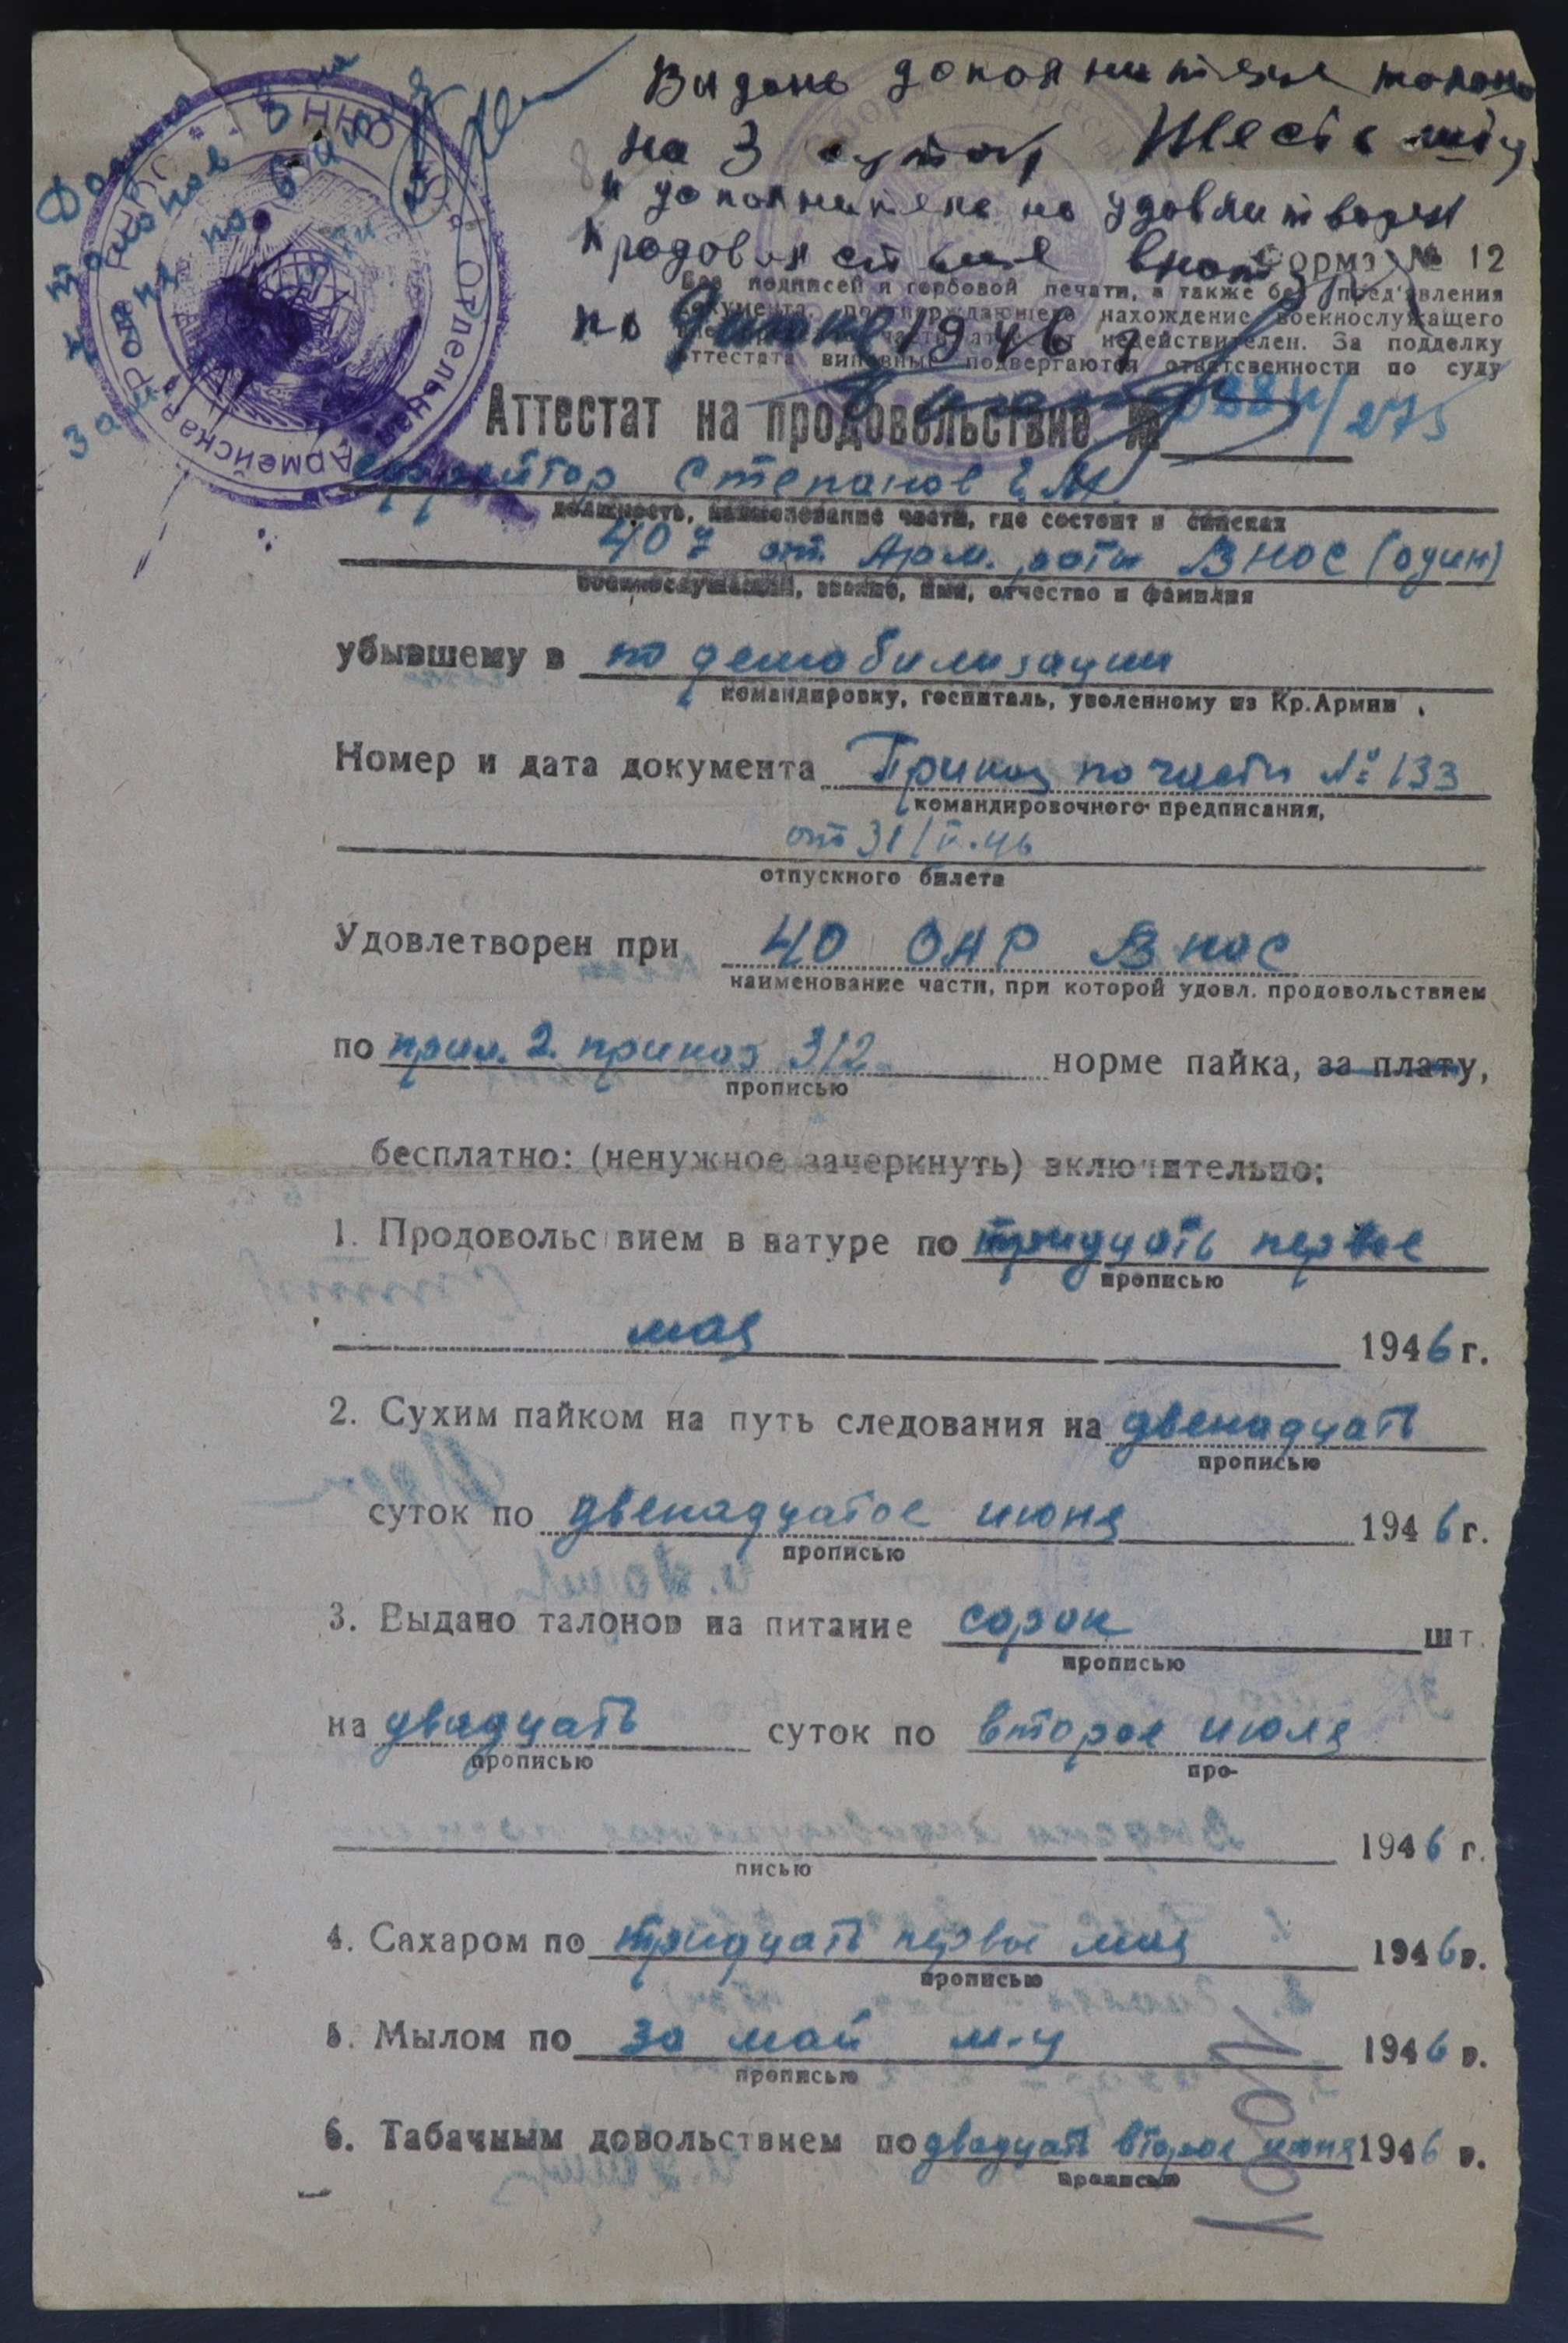 Выдано дополнительно талоны
на 3 суток Шесть шт
и дополнительно не удовлетворен
продовольствие
Форма № 12
Без подписей и гербовой печати, а также без пред'явления
документа, подтверждающего нахождение военнослужащего
недействителен. За подделку
аттестата виновные подвергаются ответсвенности по суду
по 1946 г
Аттестат на продовольствие №
/275
ефрейтор Степанов Г. М.
должность, наименование части, где состоит в списках
407 от. Арм. роты ВНОС (один)
военнослужащий, звание, имя, отчество и фамилия
убывшему в по демобилизации
командировку, госпиталь, уволенному из Кр.Армии
Номер и дата документа Приказ по части № 133
командировочного предписания,
от 31/V.46
отпускного билета
Удовлетворен при 40 ОАР ВНОС
наименование части, при которой удовл. продовольствием
по прил. 2. приказ 312 норме пайка, за плату,
прописью
бесплатно: (ненужное зачеркнуть) включительно:
1. Продовольствием в натуре по тридцать первое
прописью
мая 1946 г.
2. Сухим пайком на путь следования на двенадцать
прописью
суток по двенадцатое июня 1946 г.
прописью
3. Выдано талонов на питание сорок шт.
прописью
на двадцать суток по второе июля
прописью про-
1946 г.
писью
4. Сахаром по тридцать первое мая 1946 г.
прописью
5. Мылом по за май м-ц 1946 г.
прописью
6. Табачным довольствием по двадцать второе июня 1946 г.
прописью